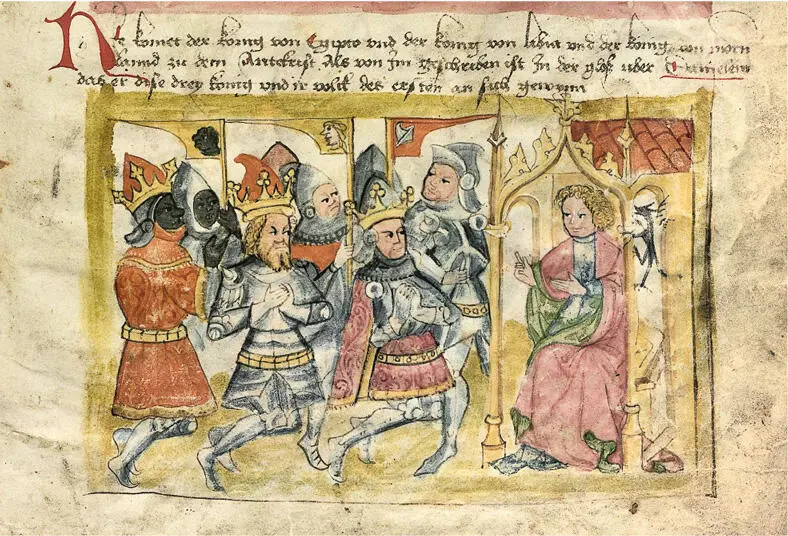 Hie komet der konig von Egipto vnd der konig von libia vnd der konig von morn
lannd zu dem Antecrist Als von Im geschriben ist In der glos uber Danielem
das er dise drey konig vnd ir volk des ersten an sich gewynn